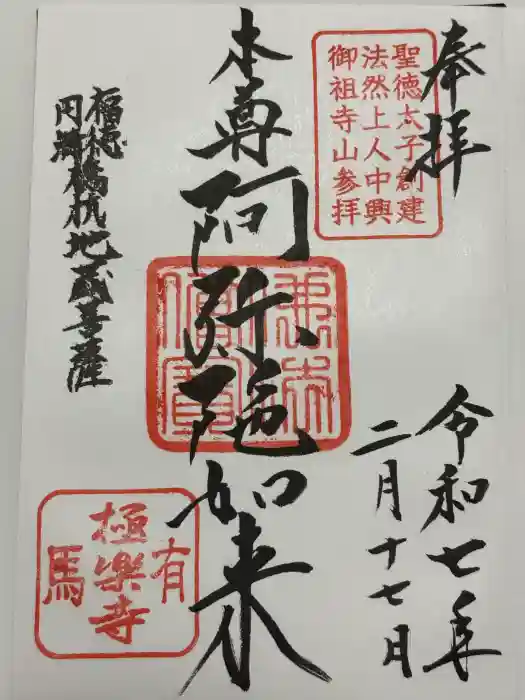 奉拝
聖徳太子創建
法然上人中興
御祖寺山参拝
令和七年
二月十七日
本尊阿弥陀如来
福徳
円満橋杭地蔵菩薩
有馬
極楽寺